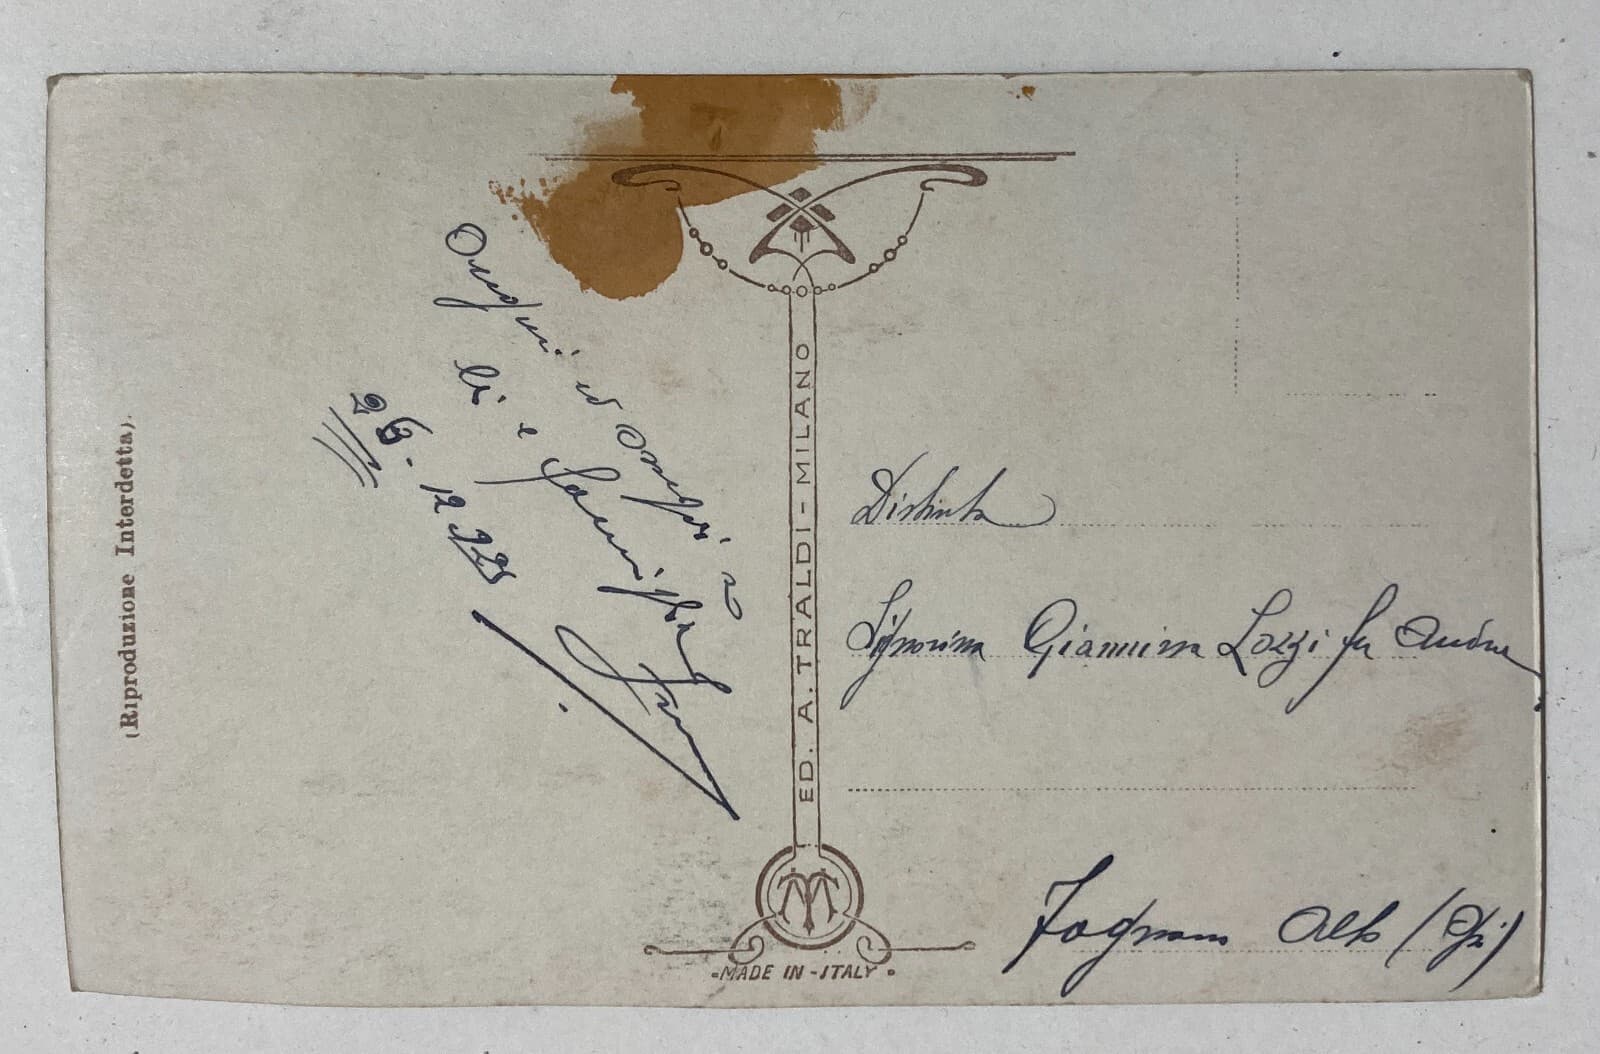 (Riproduzione Interdetta).
Auguri ed Omaggi a
lei e Famiglia
26-12-925
ED. A. TRALDI - MILANO
Distinta
Signorina Giannina Lozzi fu
Fagnano Alto (
MADE IN - ITALY